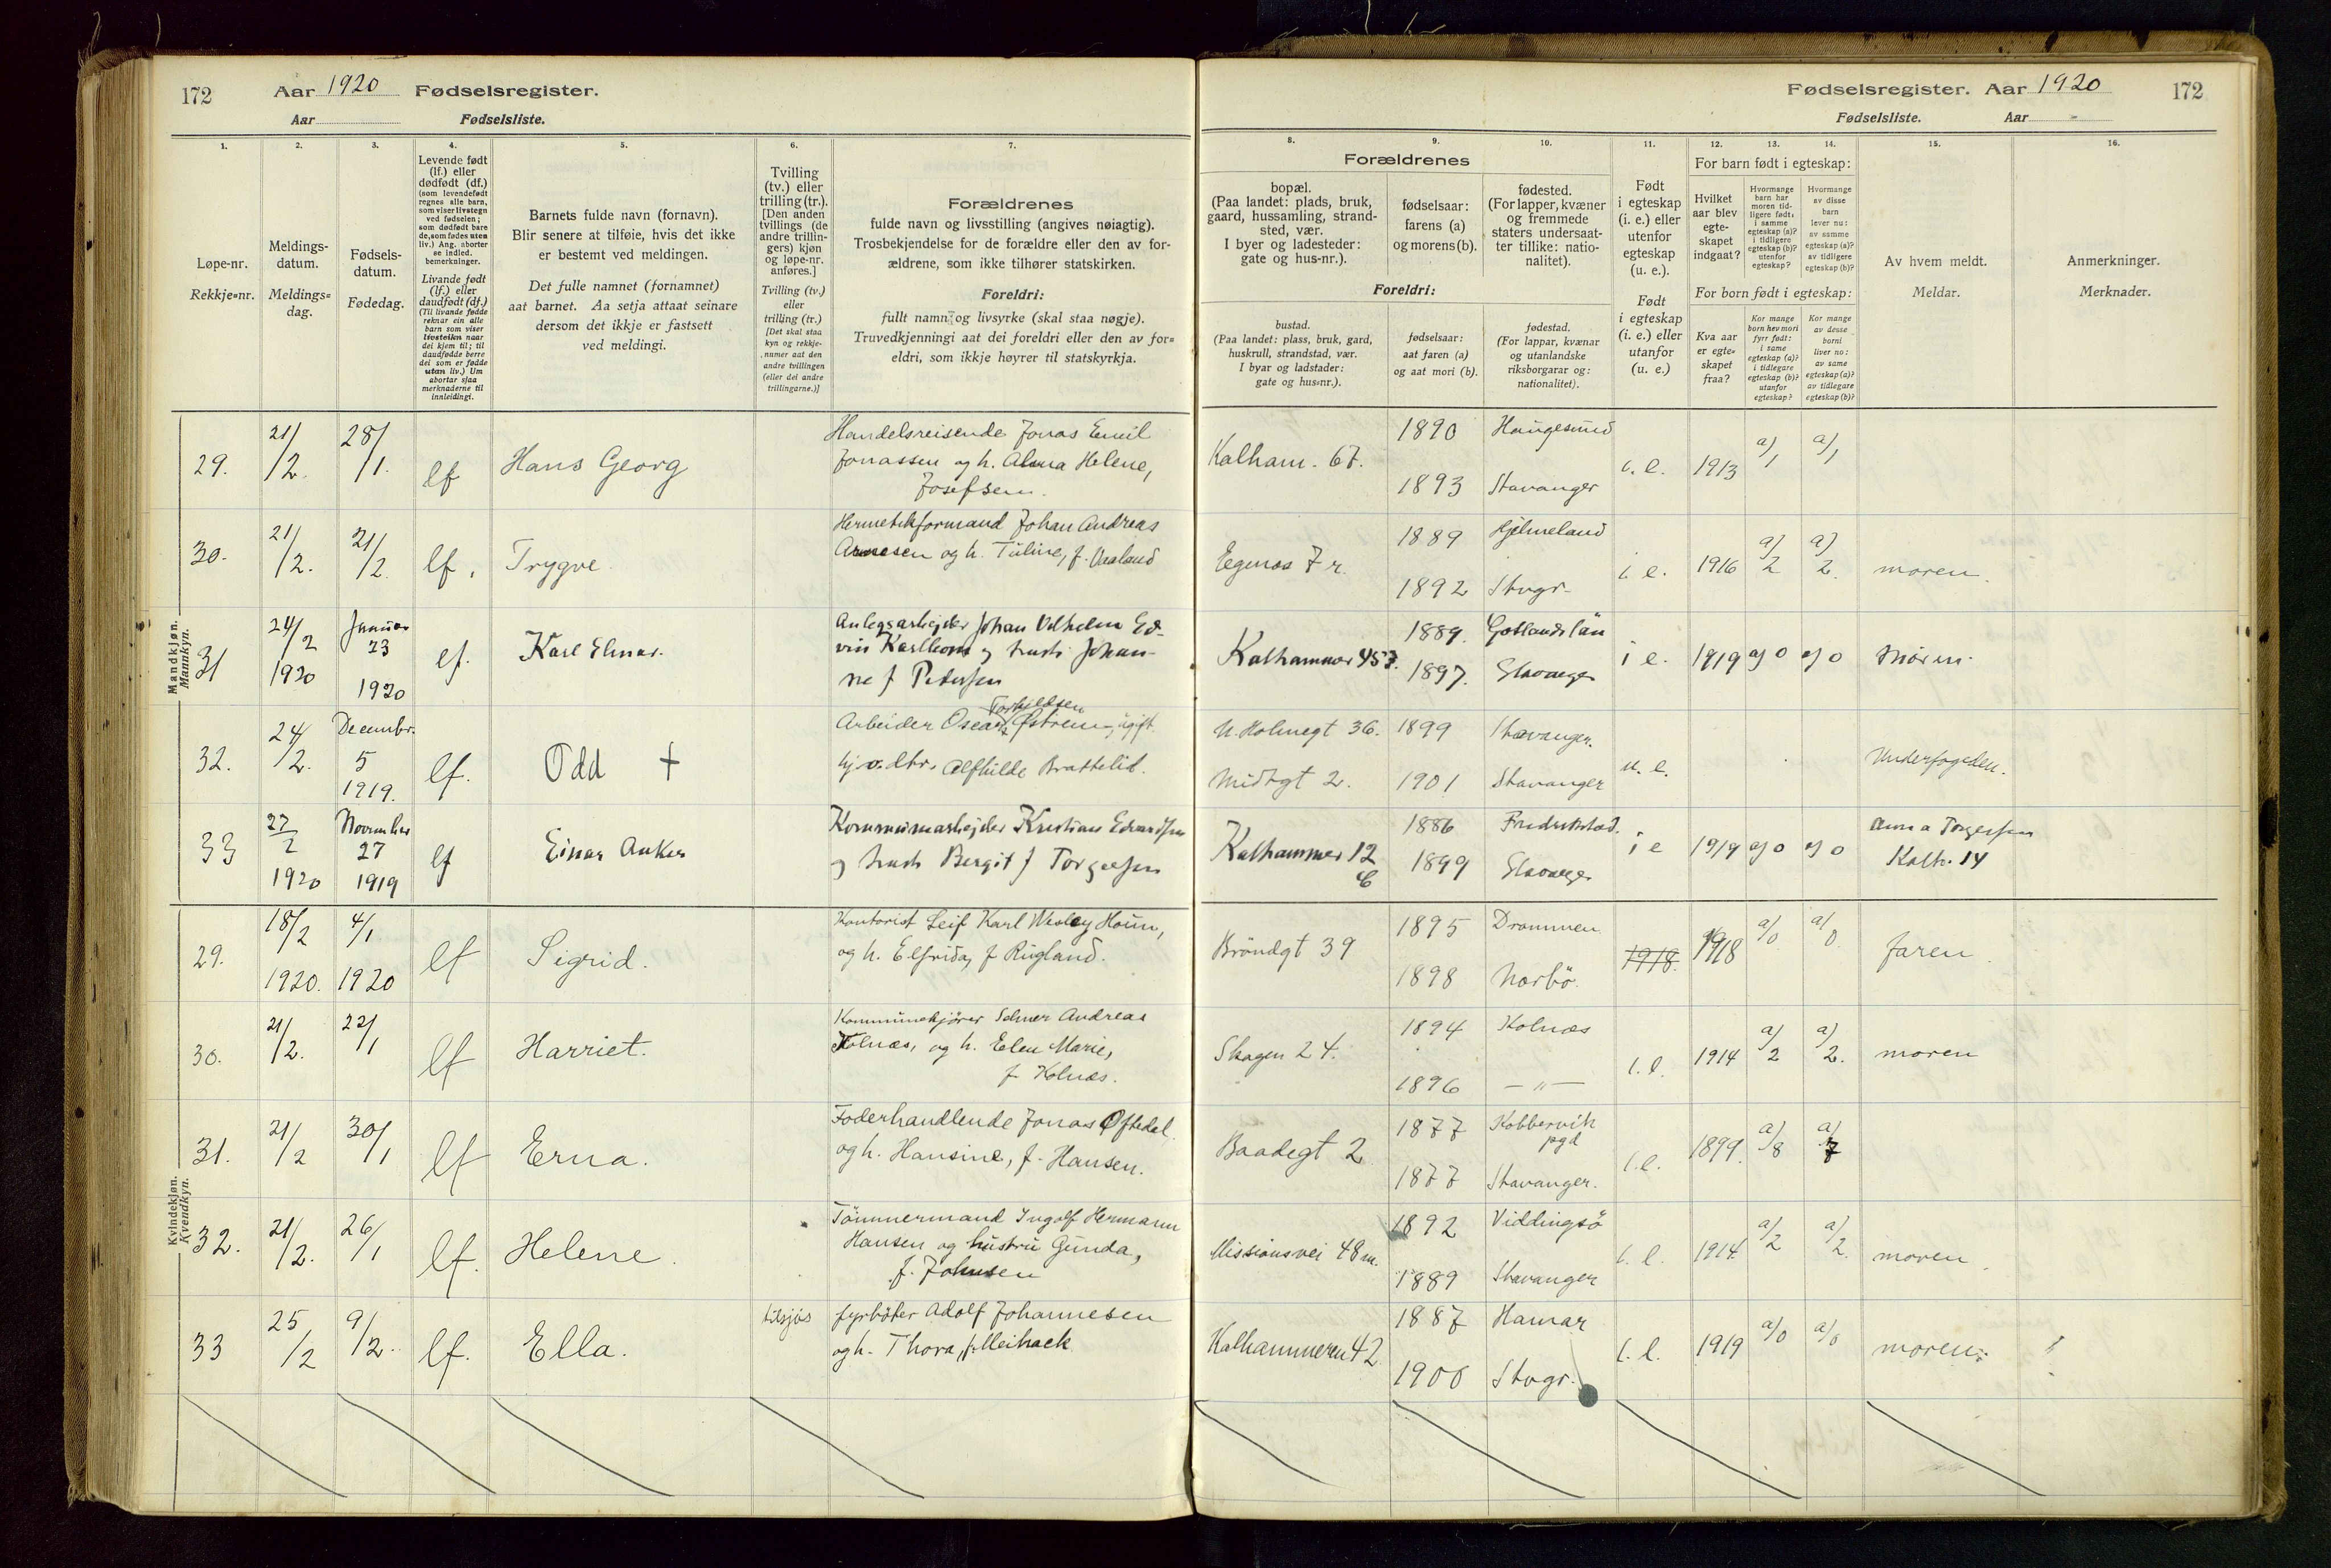 172 Aar 1920 Fødselsregister.
Aar Fødselsliste.
1.
Løpe-nr.
Rekkje=nr.
2.
Meldings-
datum.
Meldings=
dag.
3.
Fødsels-
datum.
Fødedag.
4.
Levende født
(lf.) eller
dødfødt (df.)
(som levendefødt
regnes alle barn,
som viser livstegn
ved fødselen;
som dødfødt bare
de, som fødes uten
liv.) Ang. aborter
se indled.
bemerkninger.
Livande født
(lf.) eller
daudfødt (df.)
(Til livande fødde
reknar ein alle
barn som viser
livsteikn naar
dei kjem til; til
daudfødde berre
dei som er fødde
utan liv.) Um
abortar sjaa
merknaderne til
innleidingi.
5.
Barnets fulde navn (fornavn).
Blir senere at tilføie, hvis det ikke
er bestemt ved meldingen.
Det fulle namnet (fornamnet)
aat barnet. Aa setja attaat seinare
dersom det ikkje er fastsett
ved meldingi.
6.
Tvilling
(tv.) eller
trilling (tr.).
[Den anden
tvillings (de
andre trillin-
gers) kjøn
og løpe-nr.
anføres.]
Tvilling (tv.)
eller
trilling (tr.)
[Det skal staa
kyn og rekkje-
numer aat den
andre tvillingen
(eller dei andre
trillingarne.)]
7.
Forældrenes
fulde navn og livsstilling (angives nøiagtig).
Trosbekjendelse for de forældre eller den av for-
ældrene, som ikke tilhører statskirken.
Foreldri:
fullt namn og livsyrke (skal staa nøgje).
Truvedkjenningi aat dei foreldri eller den av for=
eldri, som ikkje høyrer til statskyrkja.
Mandkjøn.
Mannkyn.
29. 21/2. 28/1. lf Hans Georg
Handelsreisende Jonas Emil
Jonassen og h. Alma Helene,
Josefsen.
30. 21/2. 21/2. lf. Trygve
Hermetikformand Johan Andreas
Arnesen og h. Tuline, f. Vaaland
31 24/2 1920 Januar 23 1920 lf. Karl Elnar.
Anlegsarbejder Johan Vilhelm Ed-
vin Karlsom og hustr Johan-
ne f Petersen
32. 24/2. Decembr. 5 1919. lf. Odd +
Torkildsen
Arbeider Oscar Østrem, ugift
hj. o. dtr. Alfhilde Brattelid.
33 27/2 1920 November 27 1919 lf Einar Anker
Kommunearbejder Kristian Edvardsen
og hustr Bergit f Torgersen
Kvindekjøn.
Kvendkyn.
29. 18/2 1920. 4/1 1920 lf Sigrid.
Kontorist Leif Karl Wesley Houm,
og h. Elfrida, f Rugland.
30. 21/2. 22/1 lf Harriet.
Kommunekjører Selmer Andreas
Kolnæs, og h. Elen Marie,
f. Kolnæs.
31. 21/2 30/1 lf Erna.
Foderhandlende Jonas Oftedal
og h. Hansine, f. Hansen.
32. 21/2. 26/1 lf. Helene.
Tömmermand Ingolf Hermann
Hansen og hustru Gunda,
f. Johnsen
33 25/2 9/2. lf. Ella.
fyrböter Adolf Johannesen
og h. Thora, f. Meihack
Fødselsregister. Aar 1920 172
Fødselsliste. Aar
8.
Forældrenes
bopæl.
(Paa landet: plads, bruk,
gaard, hussamling, strand-
sted, vær.
I byer og ladesteder:
gate og hus-nr.).
Foreldri:
bustad.
(Paa landet: plass, bruk, gard,
huskrull, strandstad, vær.
I byar og ladstader:
gate og hus=nr.).
9.
fødselsaar:
farens (a)
og morens (b).
fødselsaar:
aat faren (a)
og aat mori (b).
10.
fødested.
(For lapper, kvæner
og fremmede
staters undersaat-
ter tillike: natio-
nalitet).
fødestad.
(For lappar, kvænar
og utanlandske
riksborgarar og:
nationalitet).
11.
Født
i egteskap
(i. e.) eller
utenfor
egteskap
(u. e.).
Født
i egteskap
(i. e.) eller
utanfor
egteskap
(u. e.)
12. 13. 14.
For barn født i egteskap:
Hvilket
aar blev
egte-
skapet
indgaat?
Hvormange
barn har
moren tid-
ligere født:
i samme
egteskap (a)?
i tidligere
egteskap (b)?
utenfor
egteskap?
Hvormange
av disse
barn
lever nu:
av samme
egteskap (a)?
av tidligere
egteskap (b)?
For born født i egteskap:
Kva aar
er egte=
skapet
fraa?
Kor mange
born hev mori
fyrr født:
i same
egteskap (a)?
i tidlegare
egteskap (b)?
utanfor
egteskap?
Kor mange
av desse
borni
liver no:
av same
egteskap (a)?
av tidlegare
egteskap (b)?
15.
Av hvem meldt.
Meldar.
16.
Anmerkninger.
Merknader.
Kalham. 67. 1890 Haugesund
1893 Stavanger i. e. 1913 a/1 a/1
Egenæs 7 r. 1889 Hjelmeland
1892 Stvgr. i. e. 1916 a/2 a/2. moren.
Kalhammer 457. 1889. Gotlands län
1897. Stavanger i e. 1919 a) 0 a) 0 Moren.
N. Holmegt 36. 1899 Stavanger.
Midtgt 2. 1901 Stavanger u. e. Underfogeden.
Kalhammer 12 C 1886 Fredrikstad.
1899 Stavanger i e 1919 a) 0 a) 0 Anna Torgersen
Kalh. 14
Bröndgt 39 1895 Drammen.
1898 Norbö. 1918. 1918 a/0 a/0. faren.
Skagen 24. 1894 Kolnæs
1896 — " — i. e. 1914 a/2 a/2. moren
Baadegt 2 1877 Kobbervik
pgd
1877 Stavanger. i. e. 1899. a/8 a/7
Missionsvei 48m. 1892 Viddingsö
1889 Stavanger i. e. 1914 a/2 a/2. moren.
Kalhammeren 42. 1887 Hamar
1900 Stvgr. i. e. 1919 a/0 a/0 moren.